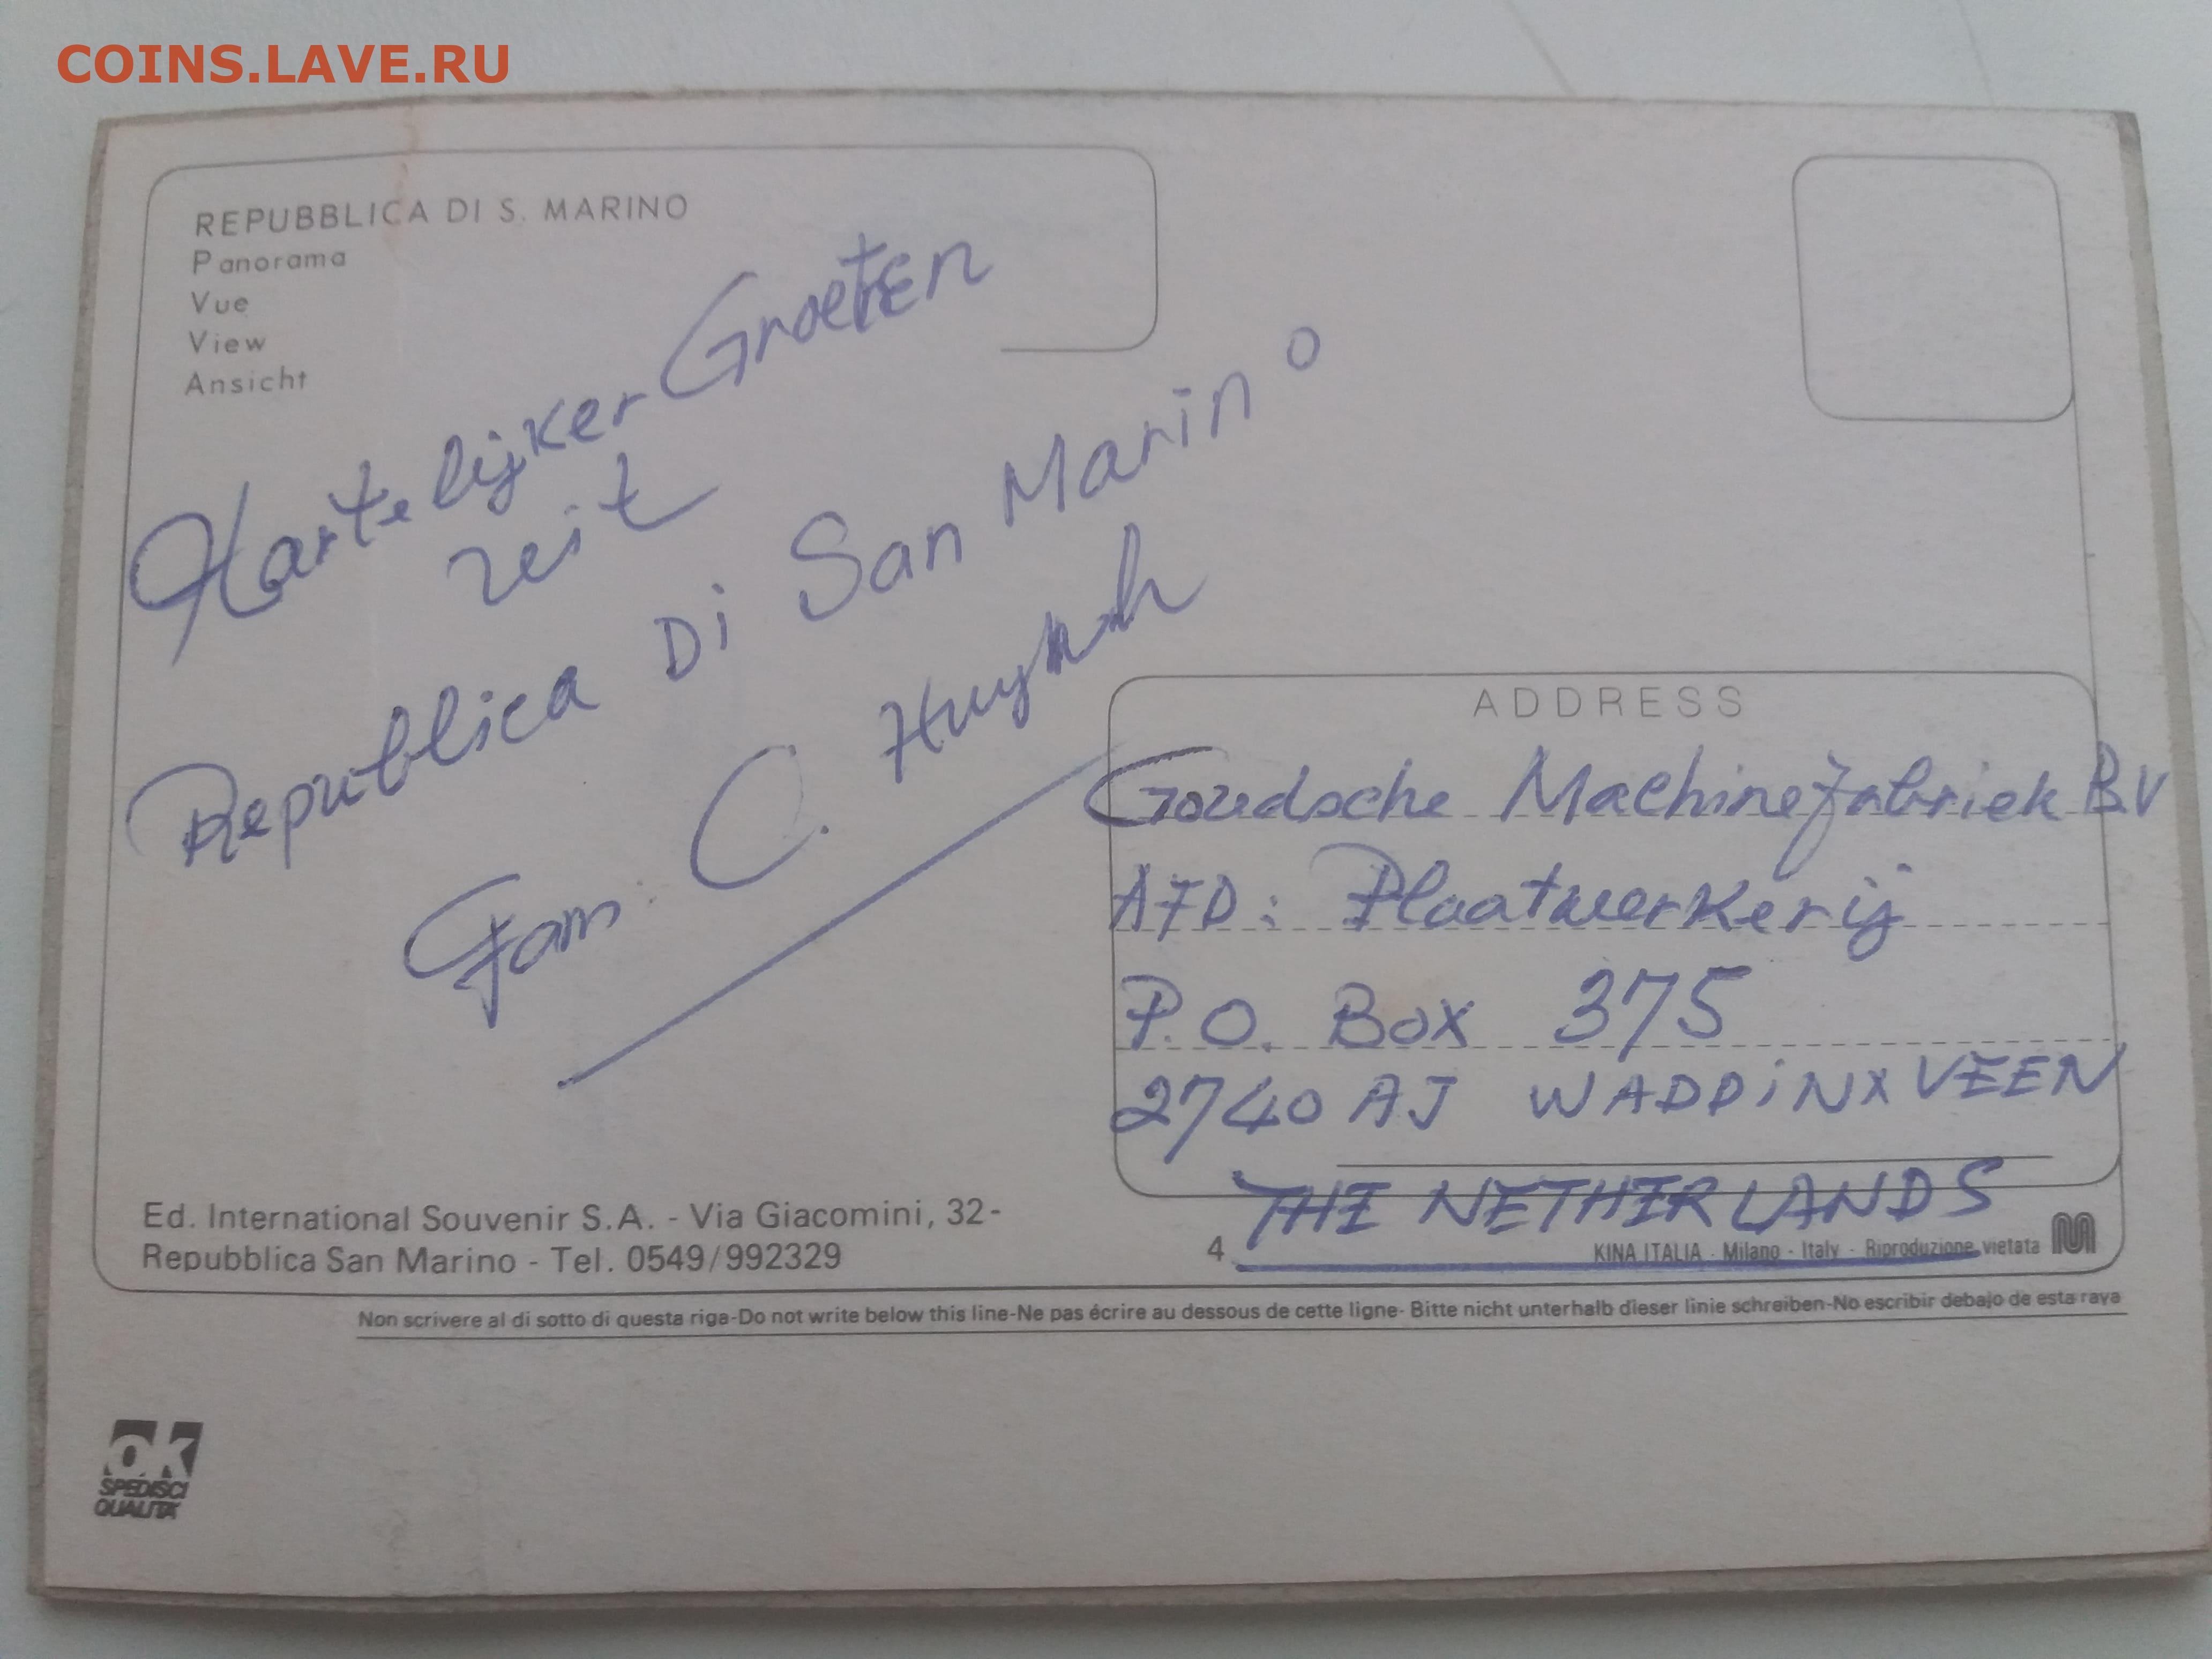 COINS.LAVE.RU
REPUBBLICA DI S. MARINO
Panorama
Vue
View
Ansicht
Hartelijker Groeten
uit
Republica Di San Marino
Fam. C. Huynh
ADDRESS
Goudsche Machinefabriek B.V
AFD: Plaatwerkerij
P.O. Box 375
2740 AJ WADDiNXVEEN
THE NETHERLANDS
Ed. International Souvenir S.A. - Via Giacomini, 32-
Repubblica San Marino - Tel. 0549/992329
4
KINA ITALIA - Milano - Italy - Riproduzione vietata
Non scrivere al di sotto di questa riga-Do not write below this line-Ne pas écrire au dessous de cette ligne- Bitte nicht unterhalb dieser linie schreiben-No escribir debajo de esta raya
OK
SPEDISCI
QUALITA'